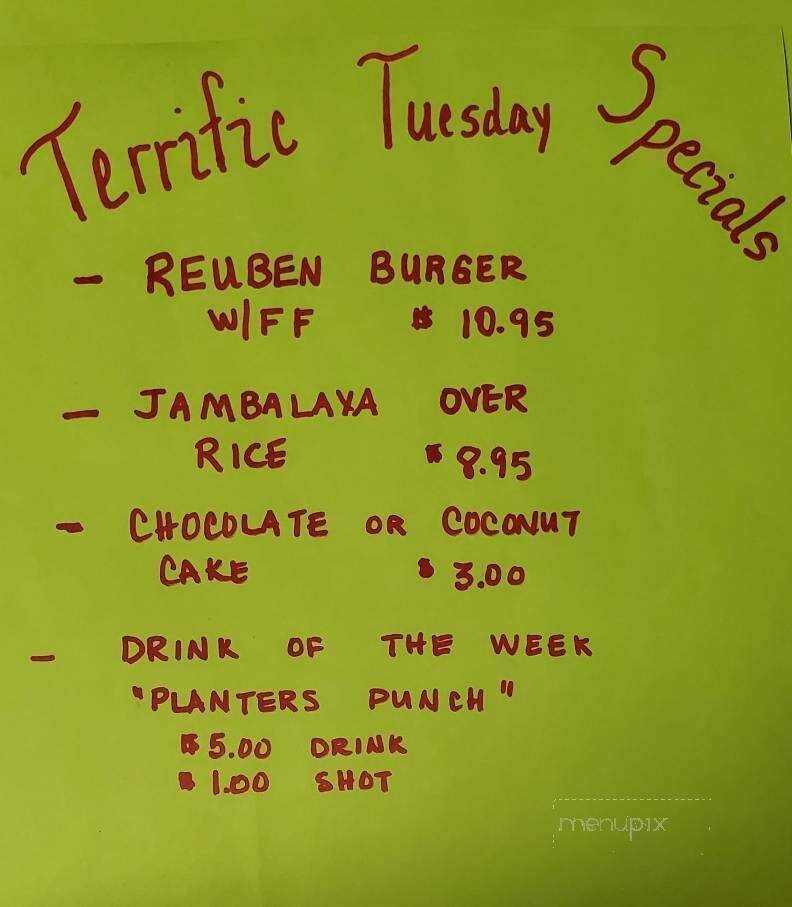 Terrific Tuesday Specials
- REUBEN BURGER
W/FF $ 10.95
- JAMBALAYA OVER
RICE $ 8.95
- CHOCOLATE OR COCONUT
CAKE $ 3.00
- DRINK OF THE WEEK
"PLANTERS PUNCH"
$ 5.00 DRINK
$ 1.00 SHOT
menupix